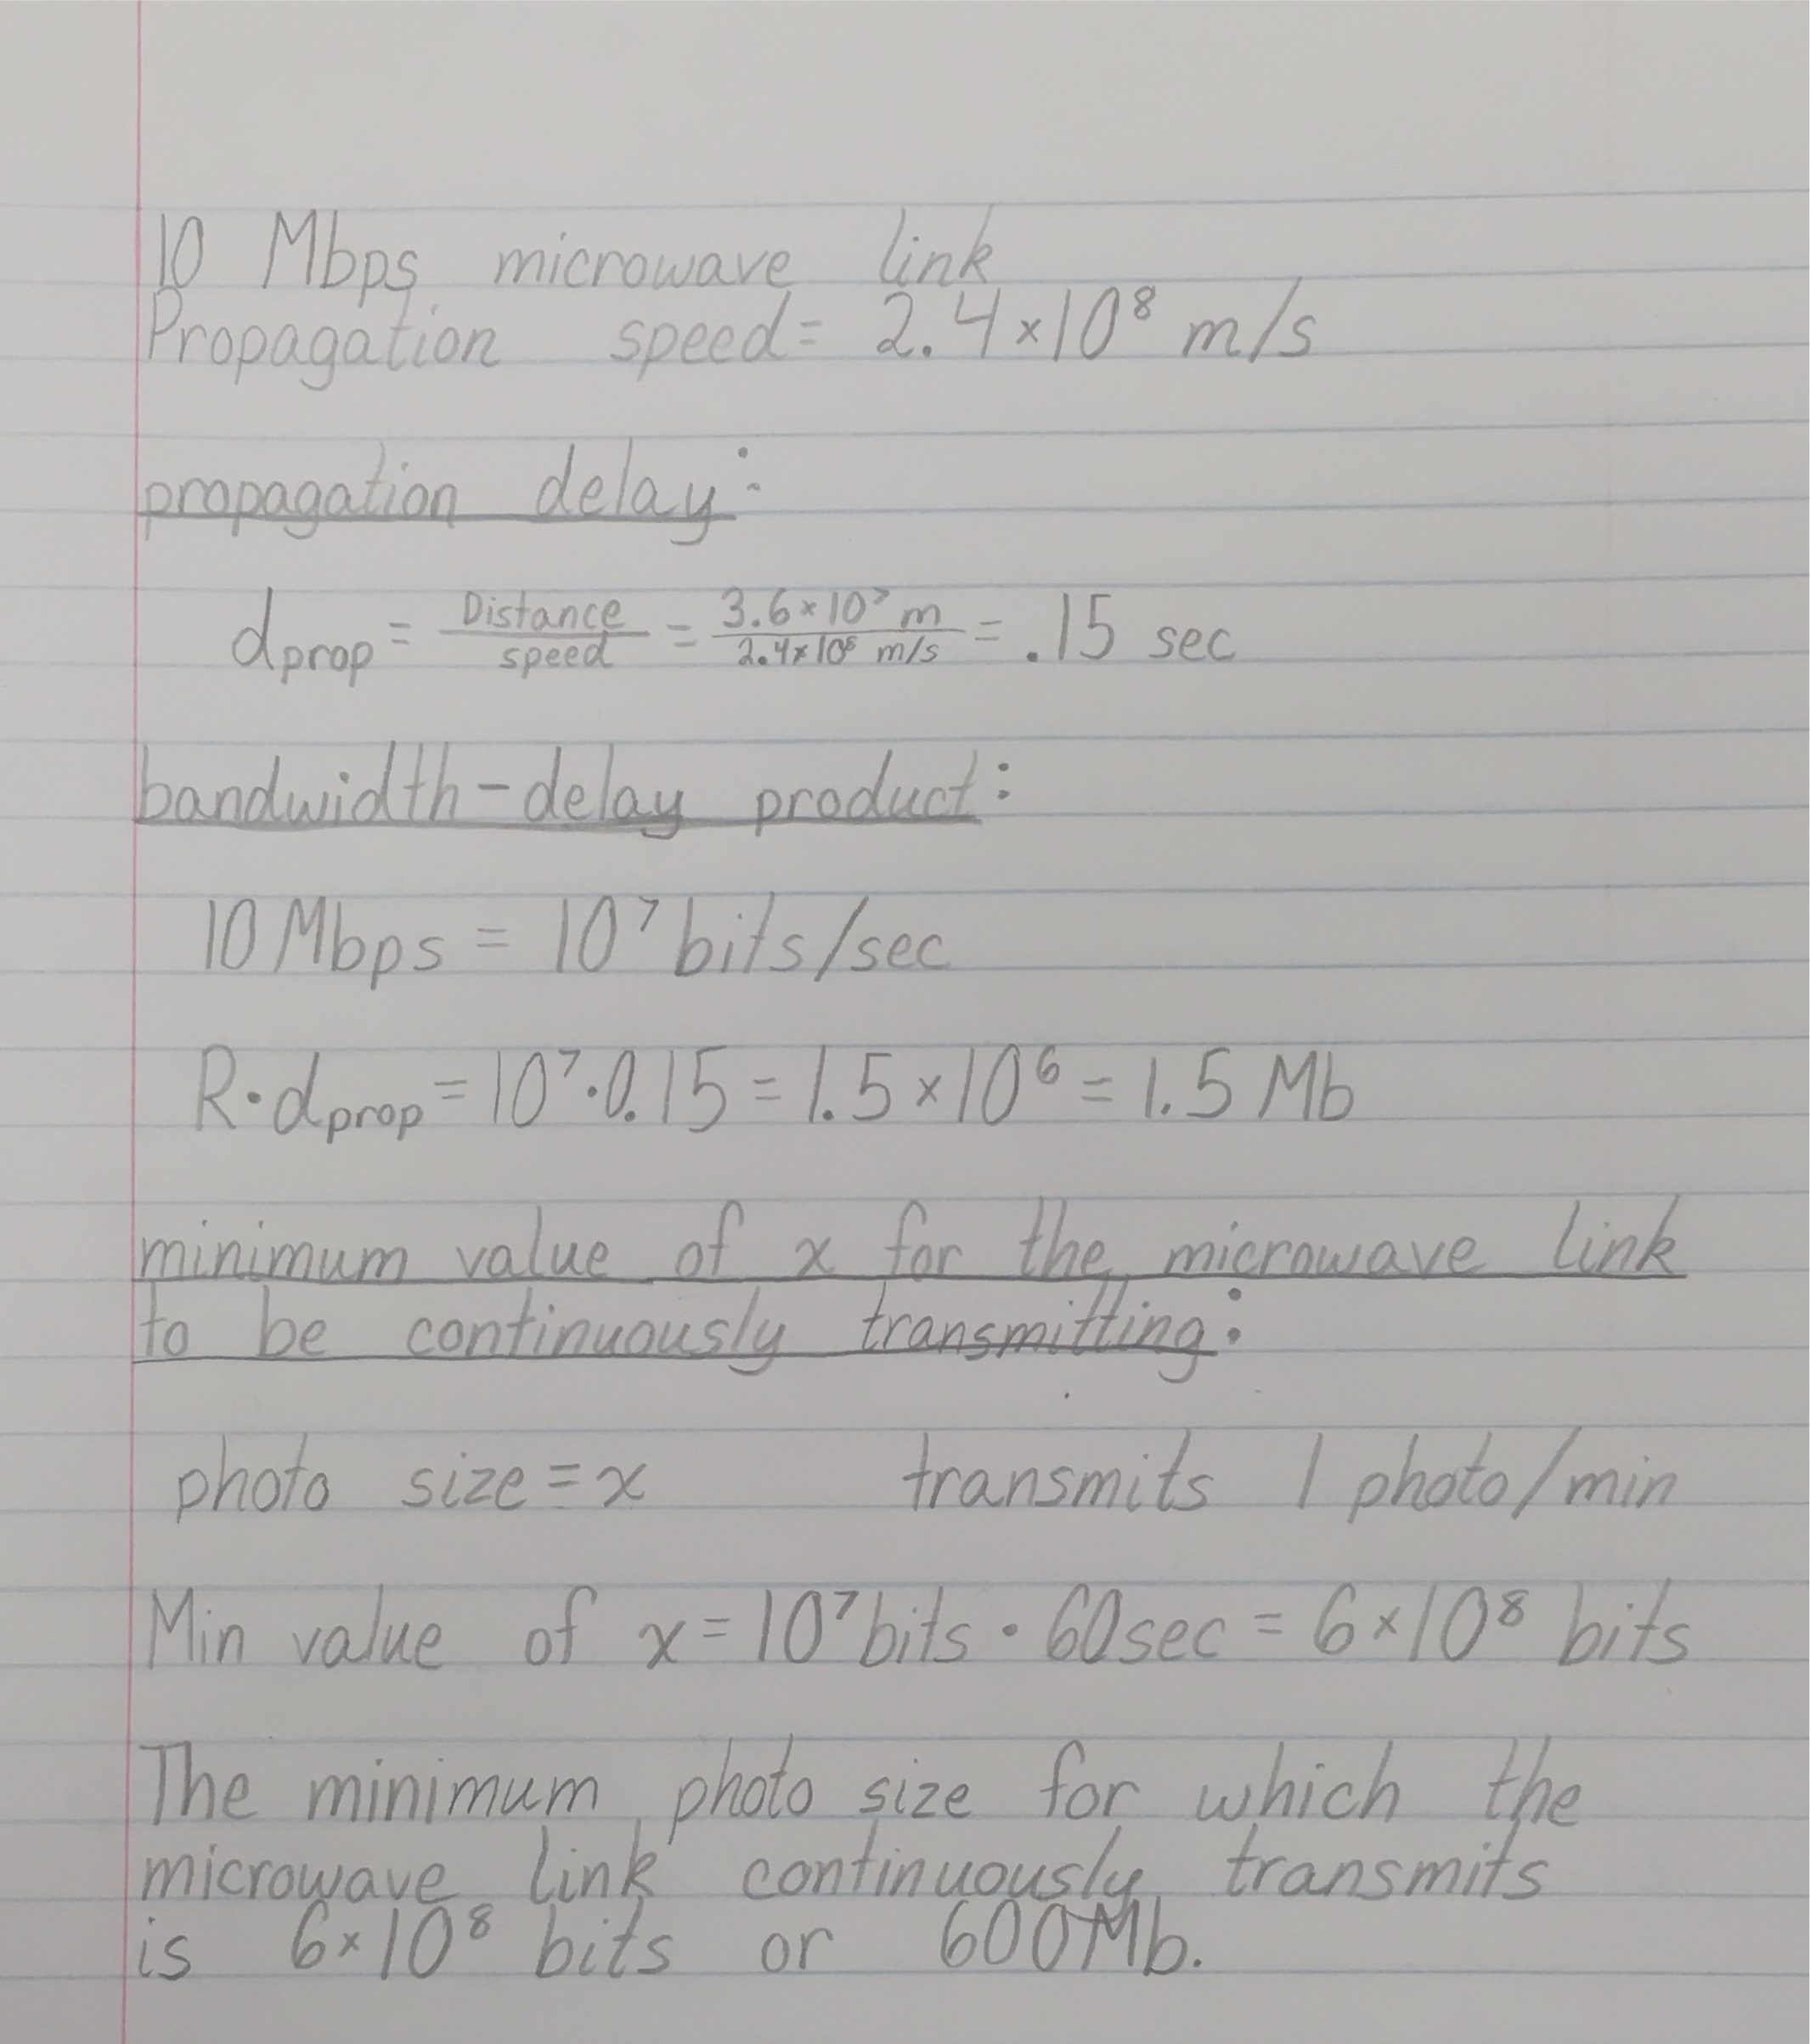 10 Mbps microwave link
Propagation speed = 2.4×10⁸ m/s
propagation delay:
d_prop = Distance/speed = 3.6×10⁷ m/2.4×10⁸ m/s = .15 sec
bandwidth-delay product:
10 Mbps = 10⁷ bits/sec
R·d_prop = 10⁷·0.15 = 1.5×10⁶ = 1.5 Mb
minimum value of x for the microwave link
to be continuously transmitting:
photo size = x transmits 1 photo/min
Min value of x = 10⁷ bits · 60 sec = 6×10⁸ bits
The minimum photo size for which the
microwave link continuously transmits
is 6×10⁸ bits or 600Mb.